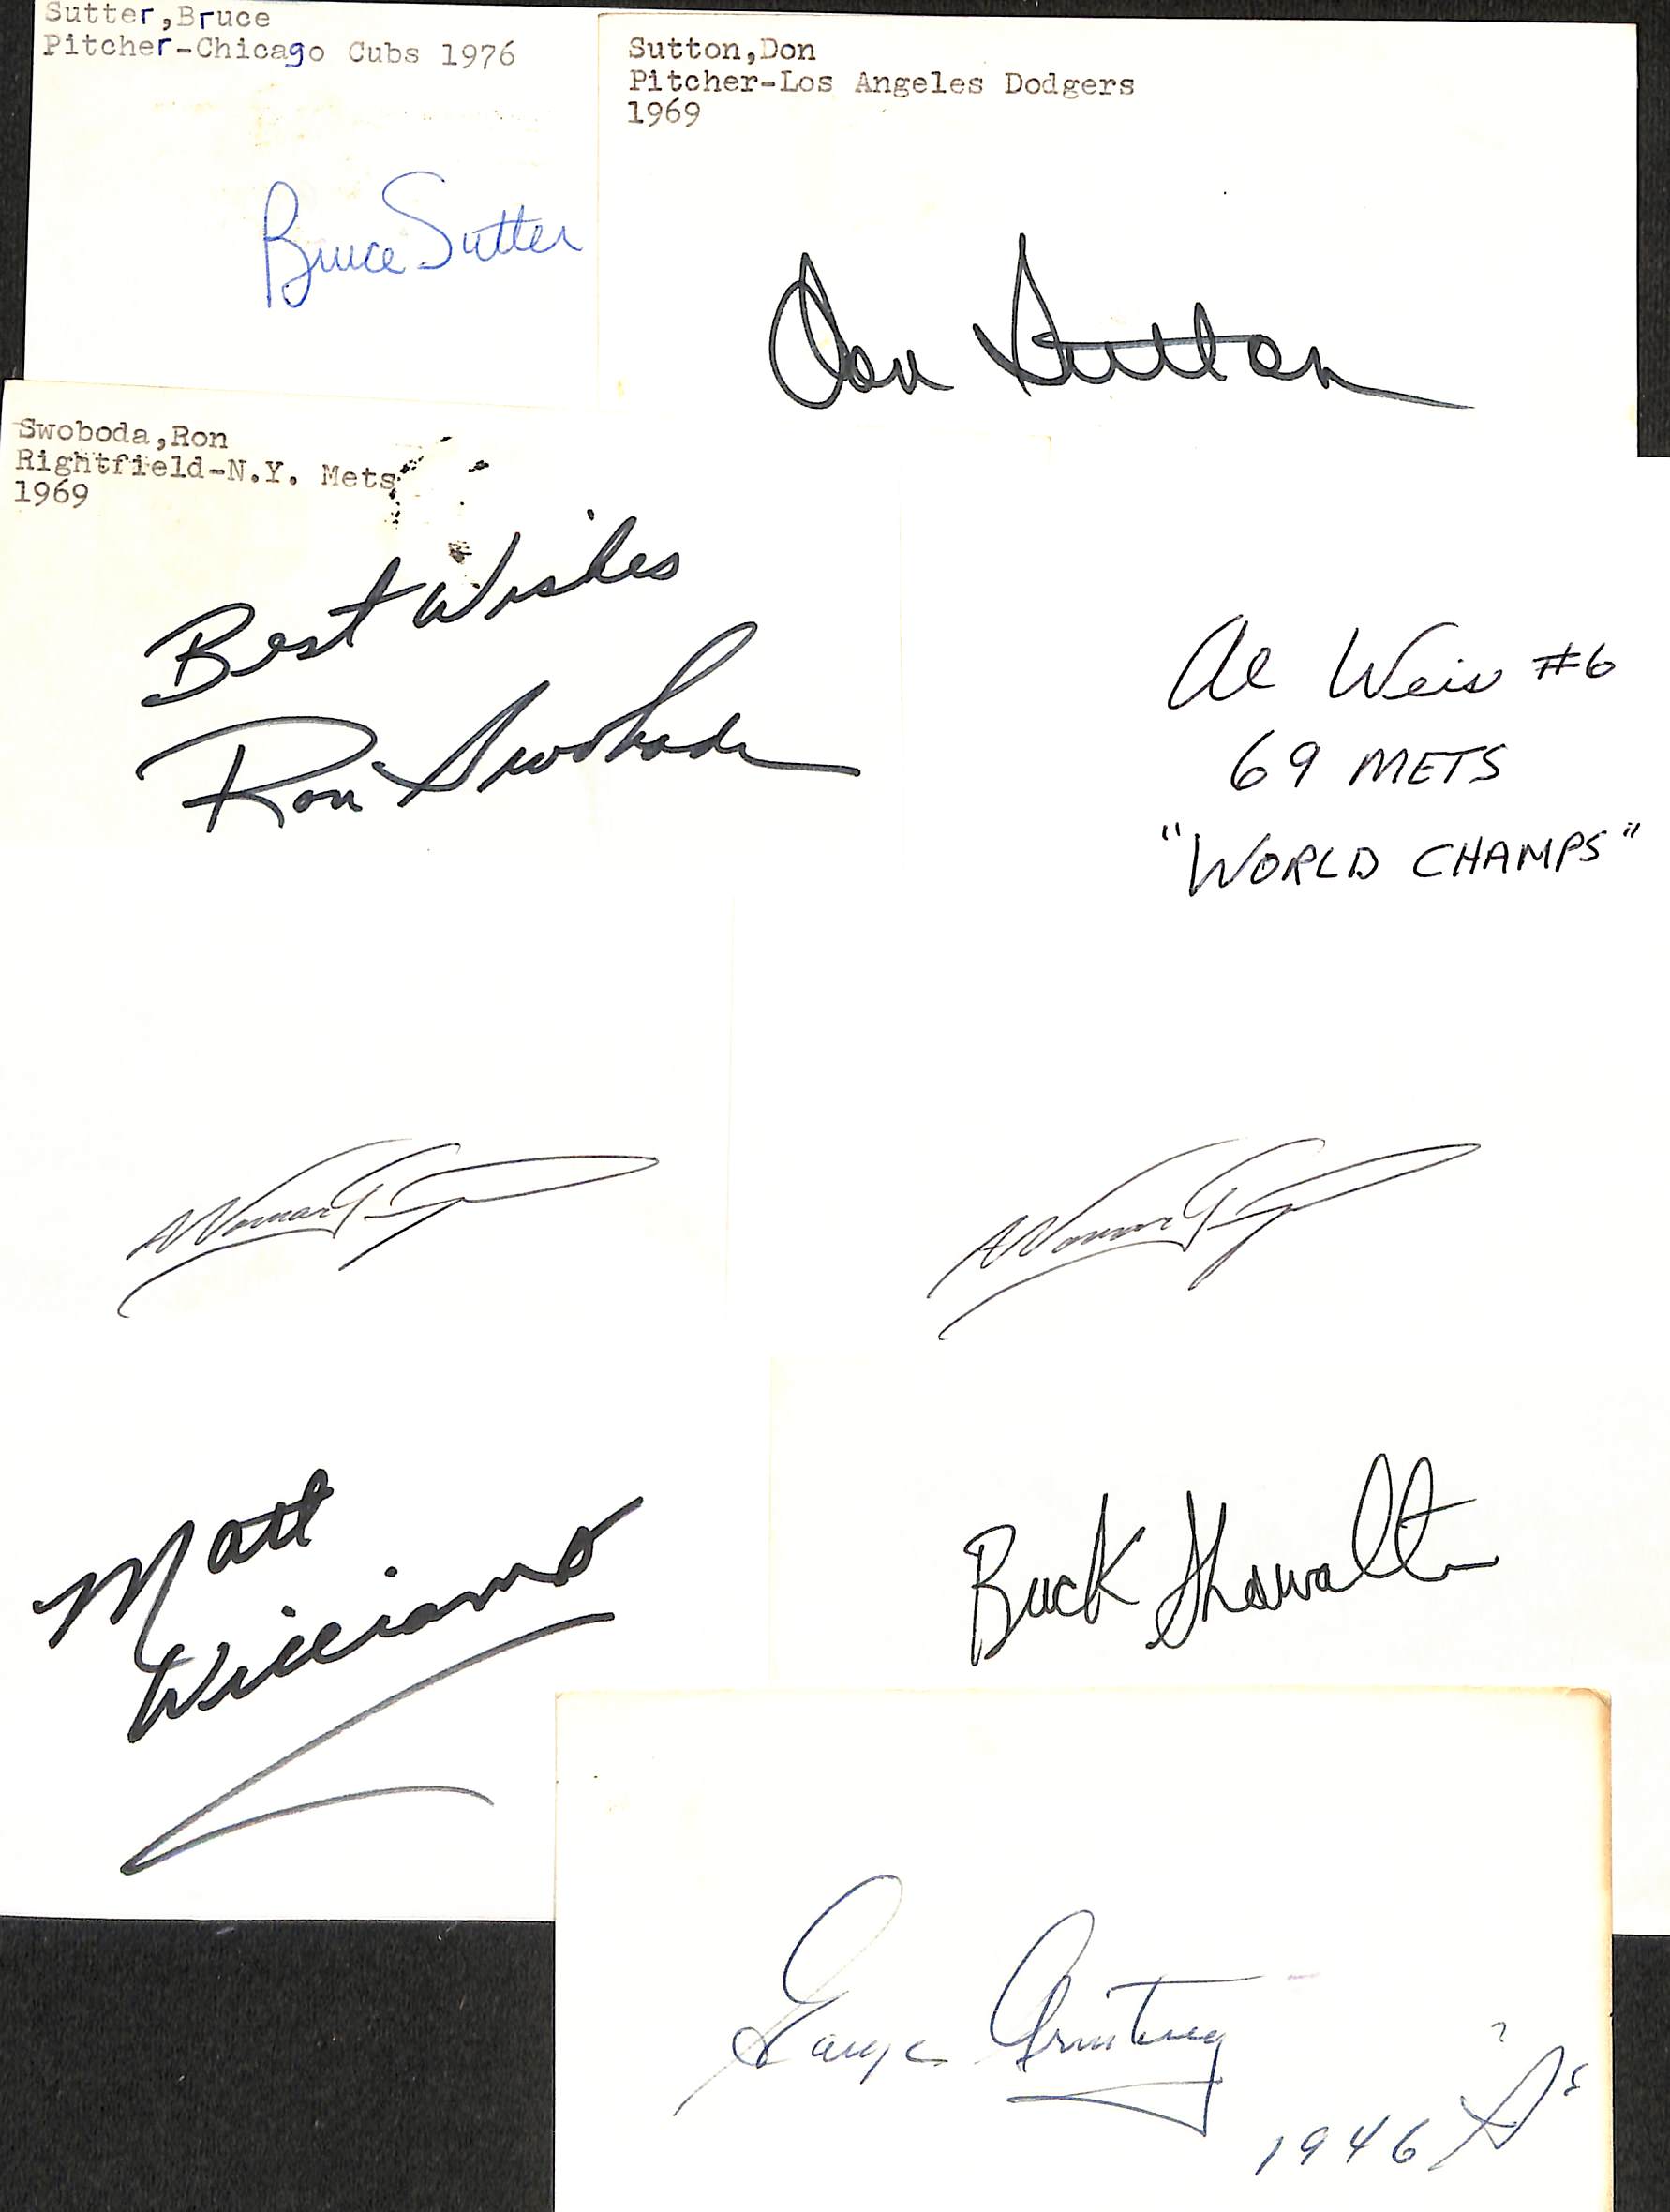 Sutter,Bruce
Pitcher-Chicago Cubs 1976
Bruce Sutter
Sutton,Don
Pitcher-Los Angeles Dodgers
1969
Don Sutton
Swoboda,Ron
Rightfield-N.Y. Mets
1969
Best Wishes
Ron Swoboda
Al Weis #6
69 METS
"WORLD CHAMPS"
Matt
Williams
Buck Showalter
George Armstrong
1946 A's